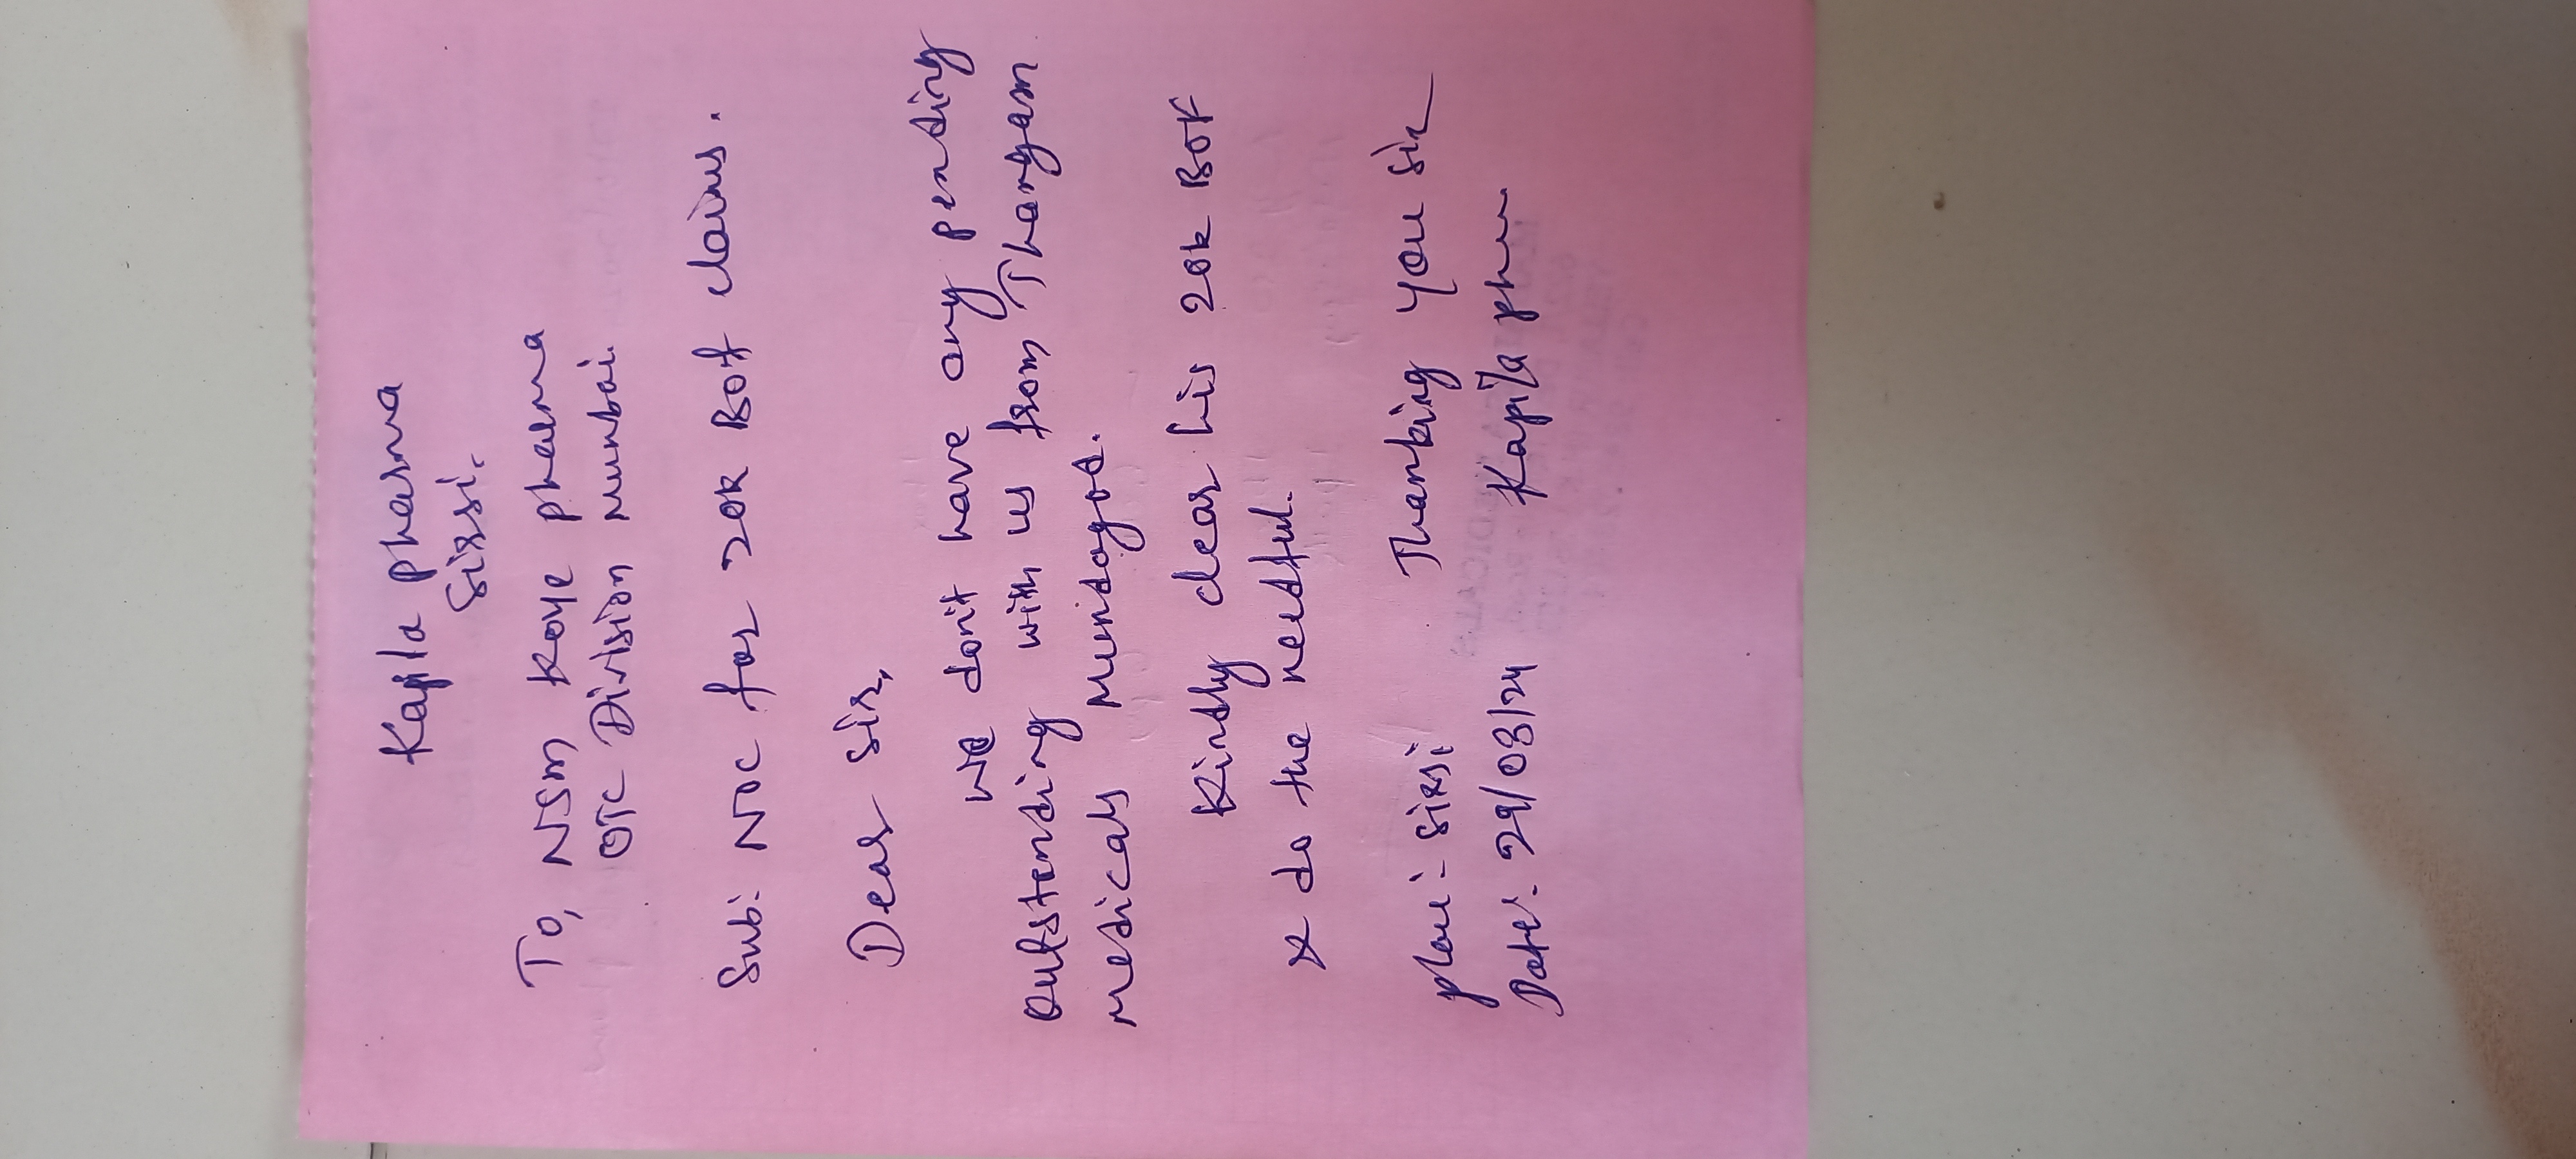 Kapila pharma
Sirsi.
To, NSM Koye pharma
OTC Division Mumbai.
Sub: NOC for 20k BOX claims.
Dear Sir,
We don't have any pending
outstanding with us from Thangam
Medicals Mundagod.
Kindly clear his 20k BOX
& do the needful.
Thanking you sir
place:- Sirsi.
Date:- 29/03/24 Kapila